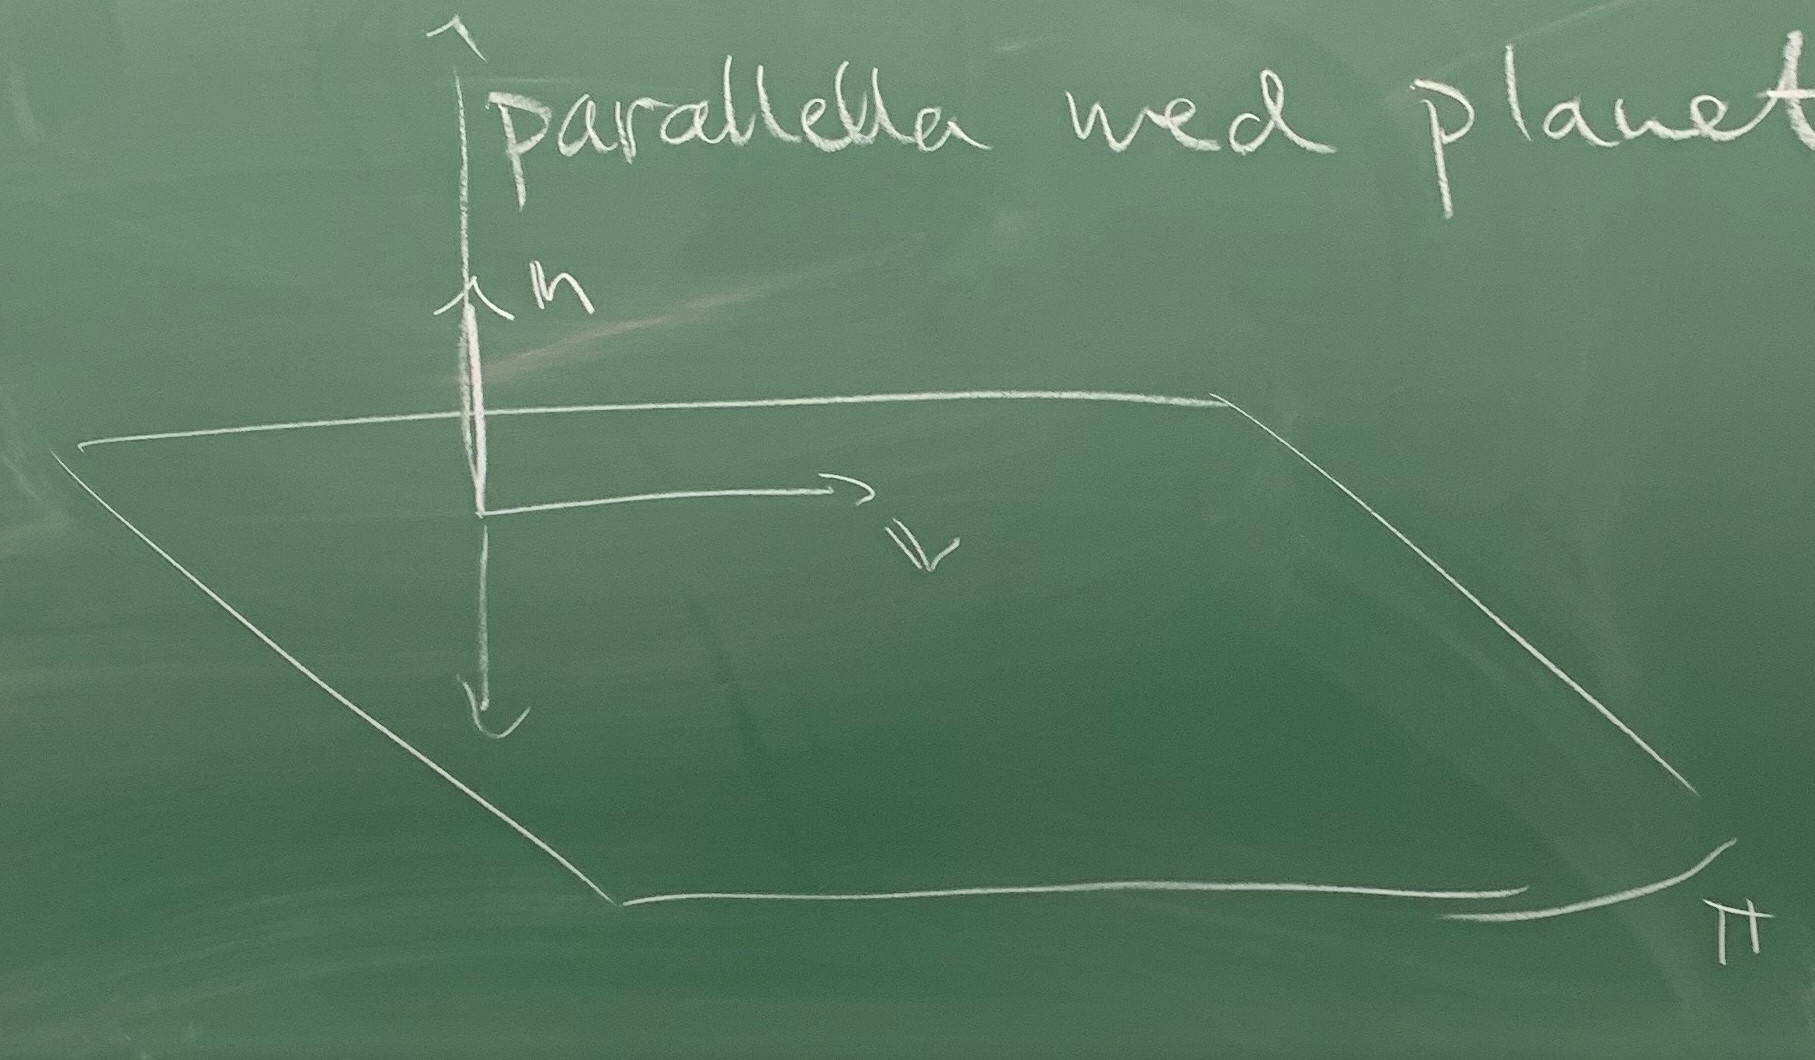 parallella med planet
n
v
π